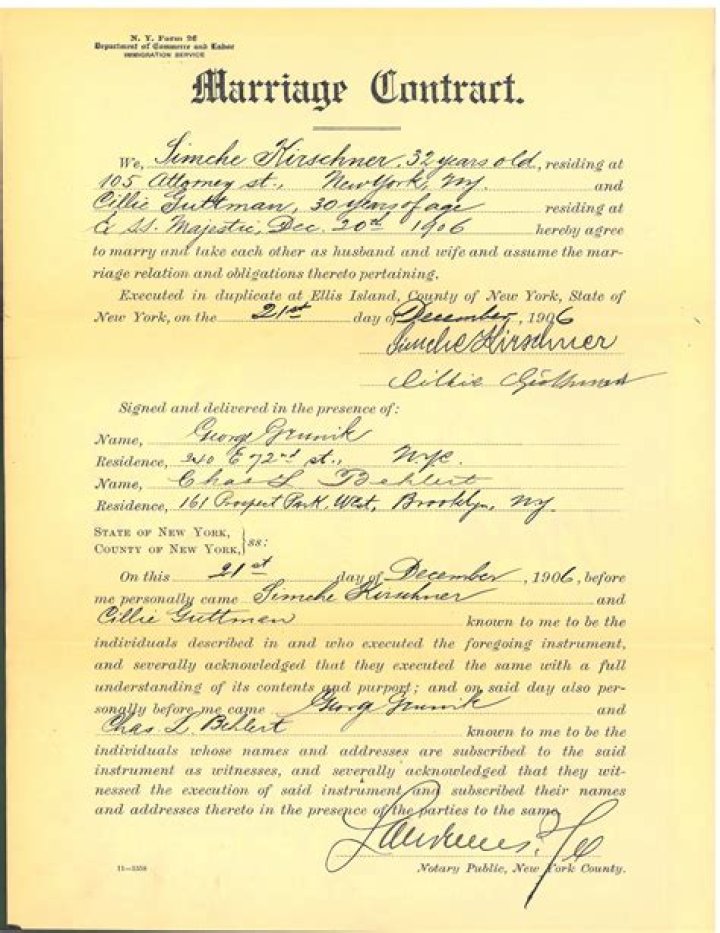 N. Y. Form 2f
Department of Commerce and Labor
IMMIGRATION SERVICE
Marriage Contract.
We, Simche Kirschner, 32 years old, residing at
105 Attorney st., New York, Ny. and
Cillie Guttman, 30 years of age residing at
Ex SS. Majestic, Dec. 20th 1906 hereby agree
to marry and take each other as husband and wife and assume the mar-
riage relation and obligations thereto pertaining.
Executed in duplicate at Ellis Island, County of New York, State of
New York, on the 21st day of December, 1906
Simche Kirschner
Cillie
Signed and delivered in the presence of:
Name, George
Residence, 240 E 72nd st., Nyc.
Name, Chas L Behlert
Residence, 161 Prospect Park, West, Brooklyn, Ny.
STATE OF NEW YORK,
COUNTY OF NEW YORK, } ss:
On this 21st day of December, 1906, before
me personally came Simche Kirschner and
Cillie Guttman known to me to be the
individuals described in and who executed the foregoing instrument,
and severally acknowledged that they executed the same with a full
understanding of its contents and purport; and on said day also per-
sonally before me came George and
Chas. L Behlert known to me to be the
individuals whose names and addresses are subscribed to the said
instrument as witnesses, and severally acknowledged that they wit-
nessed the execution of said instrument and subscribed their names
and addresses thereto in the presence of the parties to the same.
Notary Public, New York County.
11—3558